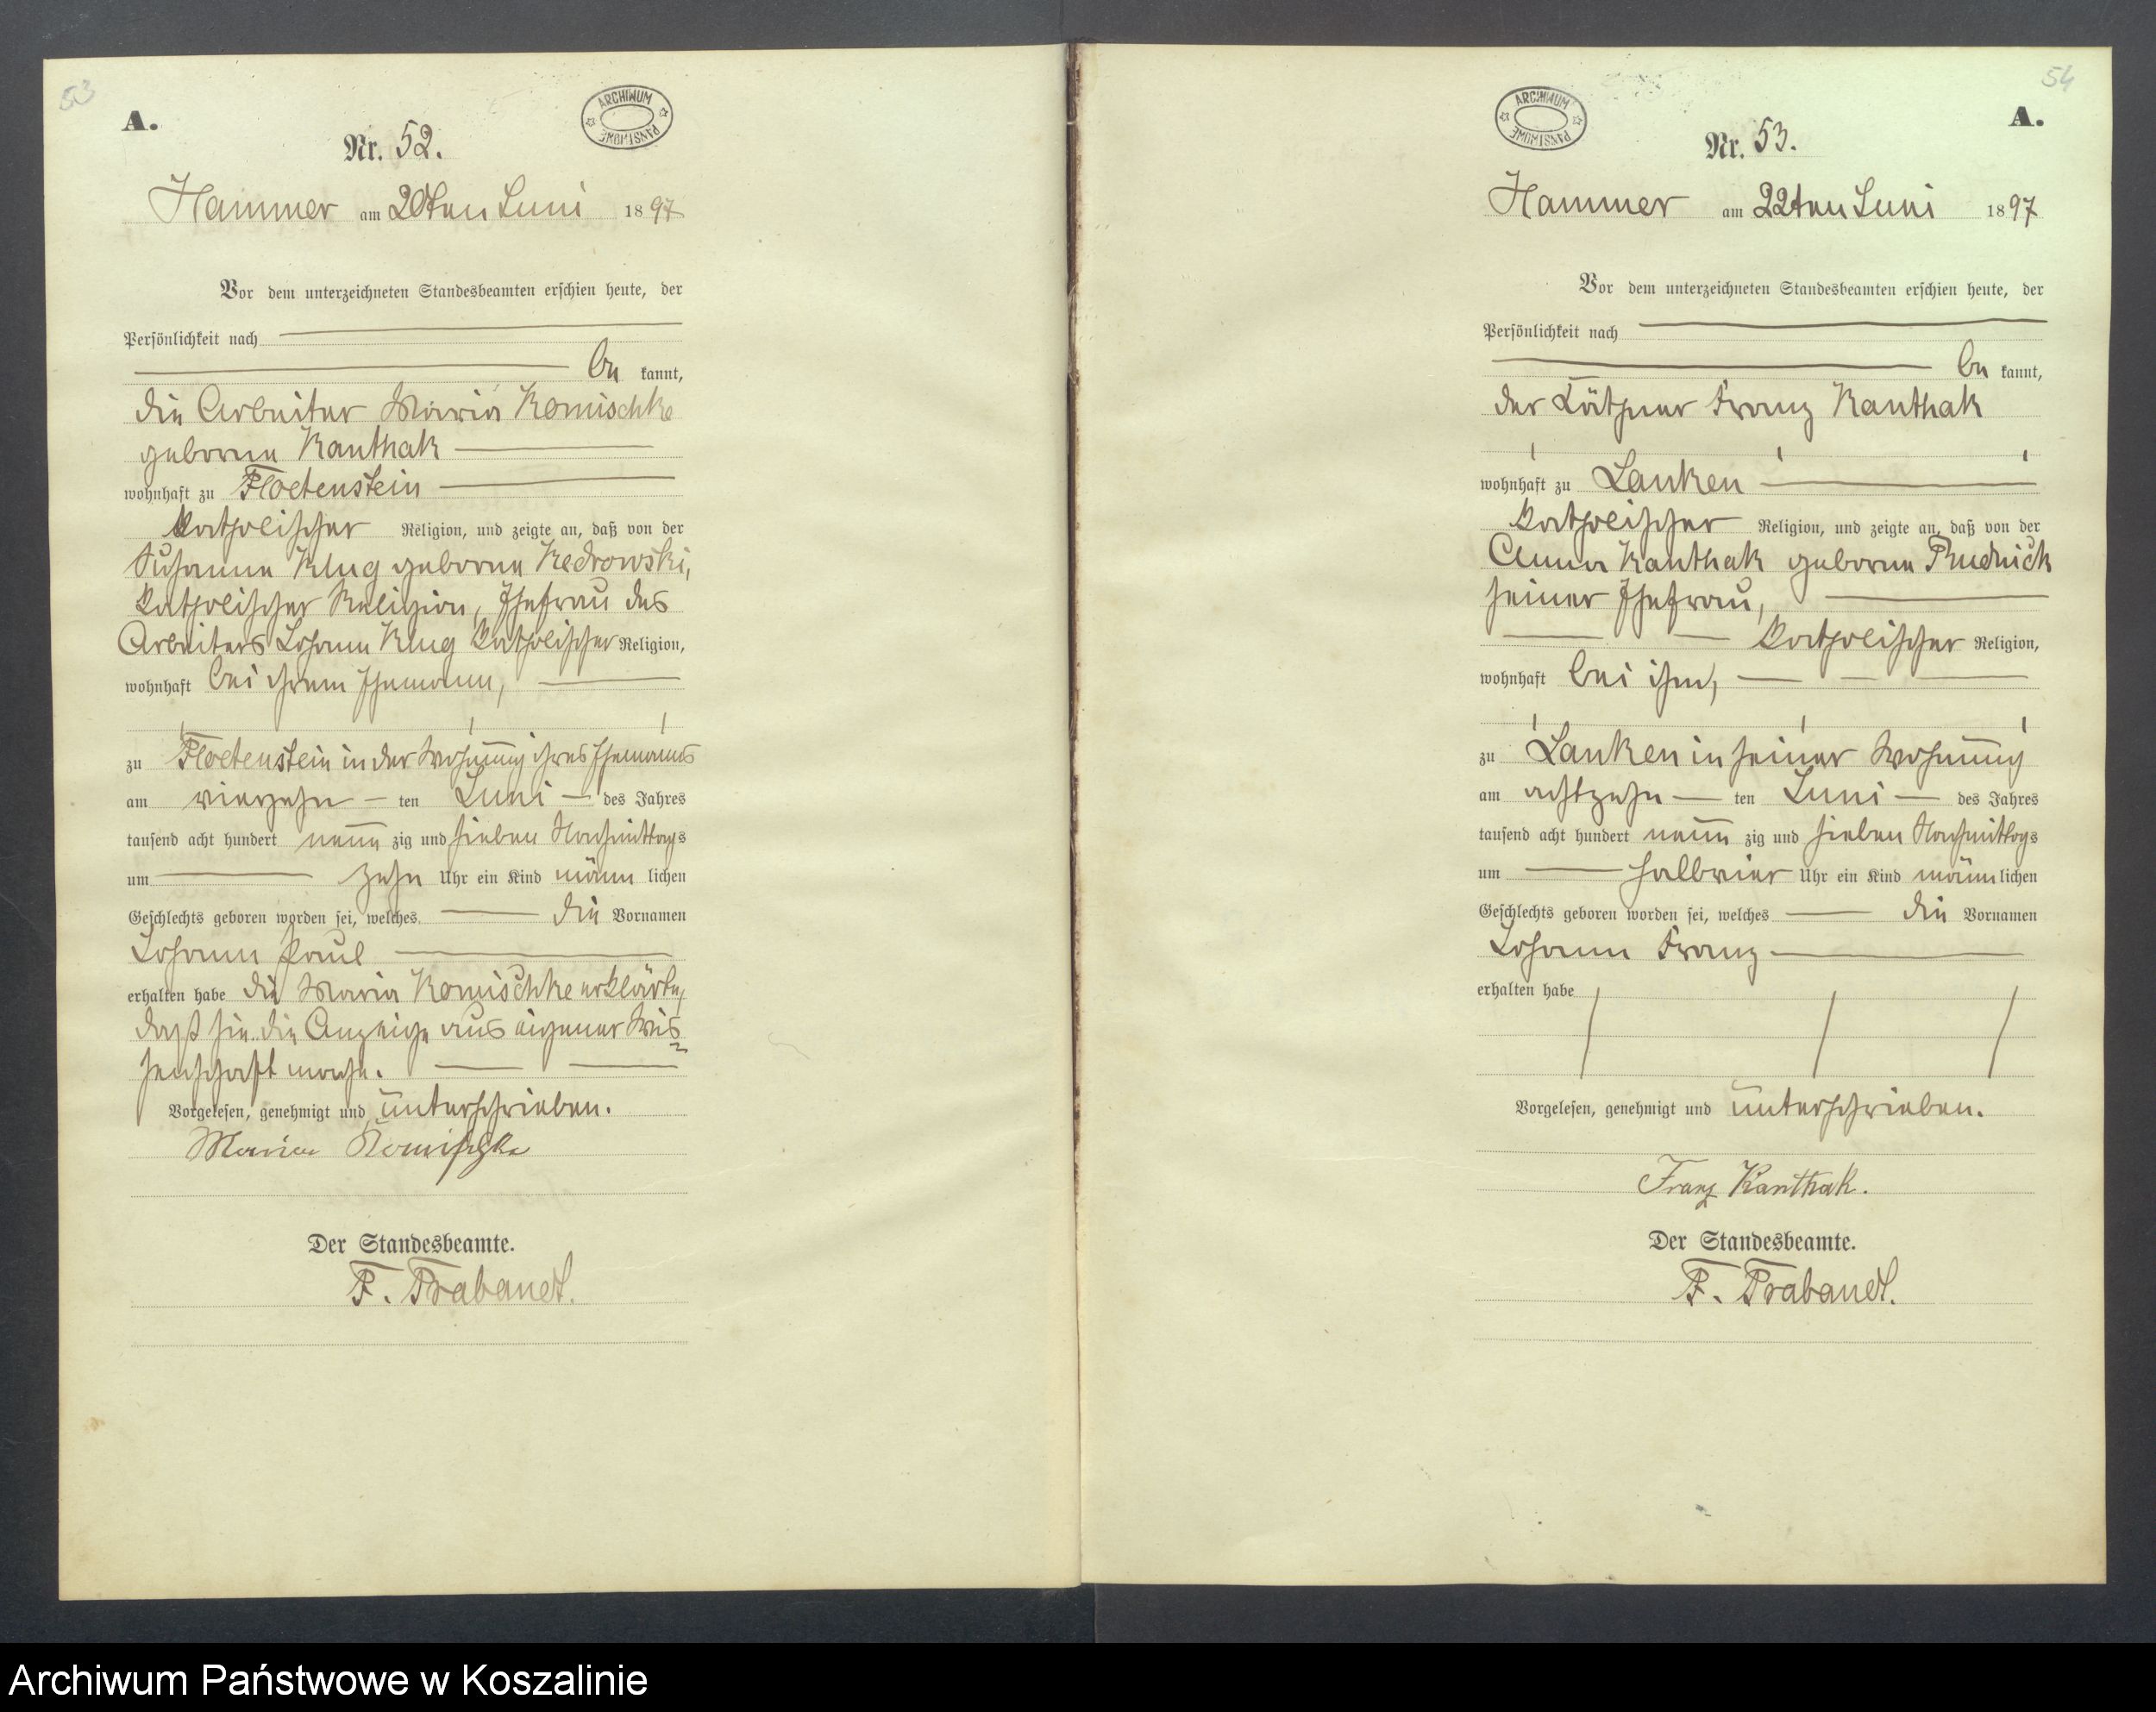 53
A.
ARCHIWUM PAŃSTWOWE
Nr. 52.
Hammer am 20ten Juni 1897
Vor dem unterzeichneten Standesbeamten erschien heute, der
Persönlichkeit nach
be kannt,
die Arbeiter Maria Komischke
geborne Kanthak
wohnhaft zu Floetenstein
katholischer Religion, und zeigte an, daß von der
Susanna Klug geborne Kedrowski,
katholischer Religion, Ehefrau des
Arbeiters Johann Klug katholischer Religion,
wohnhaft bei ihrem Ehemann,
zu Floetenstein in der Wohnung ihres Ehemanns
am vierzehn ten Juni des Jahres
tausend acht hundert neun zig und sieben Nachmittags
um zehn Uhr ein Kind männ lichen
Geschlechts geboren worden sei, welches die Vornamen
Johann Paul
erhalten habe die Maria Komischke erklärte,
daß sie die Anzeige aus eigener Wis=
senschaft mache.
Vorgelesen, genehmigt und unterschrieben.
Maria Komischke
Der Standesbeamte.
F. Trabandt.
54
A.
ARCHIWUM PAŃSTWOWE
Nr. 53.
Hammer am 22ten Juni 1897
Vor dem unterzeichneten Standesbeamten erschien heute, der
Persönlichkeit nach
be kannt,
der Käthner Franz Kanthak
wohnhaft zu Lanken
katholischer Religion, und zeigte an, daß von der
Anna Kanthak geborne Rudnick
seiner Ehefrau,
katholischer Religion,
wohnhaft bei ihm,
zu Lanken in seiner Wohnung
am achtzehn ten Juni des Jahres
tausend acht hundert neun zig und sieben Nachmittags
um halbvier Uhr ein Kind männ lichen
Geschlechts geboren worden sei, welches die Vornamen
Johann Franz
erhalten habe
Vorgelesen, genehmigt und unterschrieben.
Franz Kanthak.
Der Standesbeamte.
F. Trabandt.
Archiwum Państwowe w Koszalinie